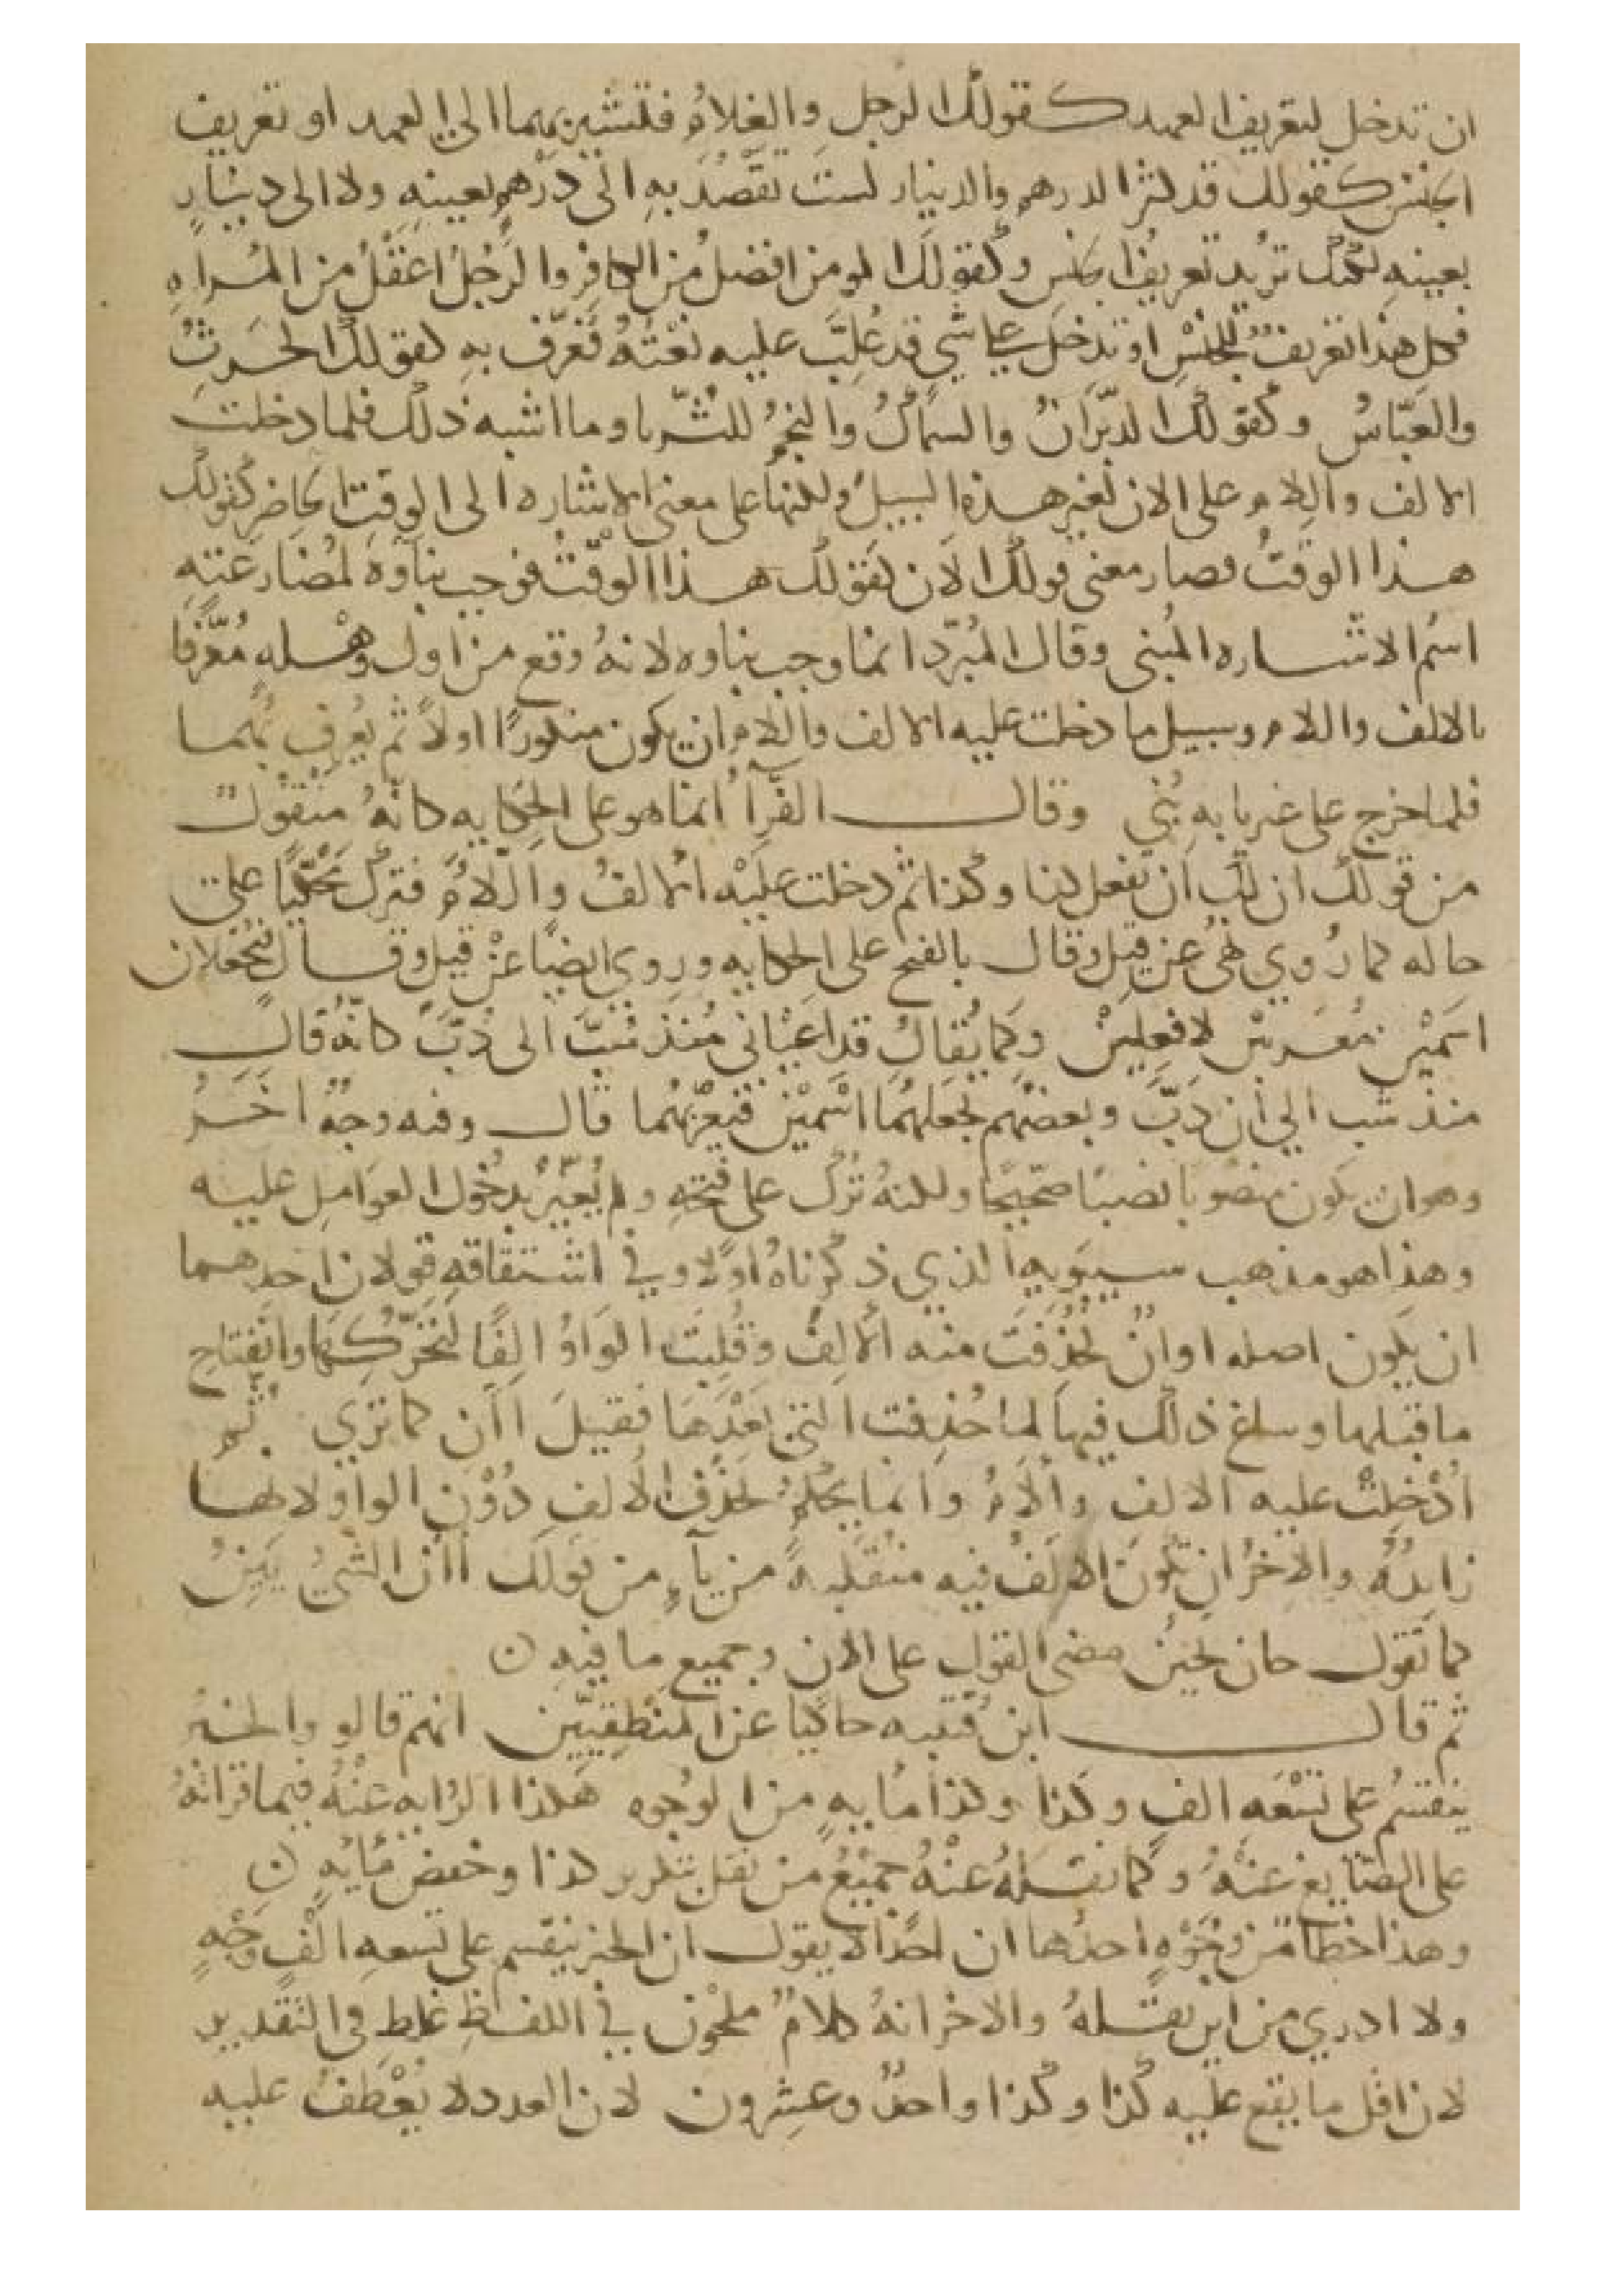 ان تدخل لتعريف العهد كقولك الرجلِ والغلامُ فتشير بهما الى العهد او تعريف
الجنس كقولك قد كثر الدرهم والدينار لستَ تقصُدُ بهِ الى دَرْهمٍ بعينهِ ولا الى دينارٍ
بعينهِ لكنك تريد تعريفُ الجنس وكقولكَ المومن افضلُ من الكافِرْ والرَّجُلُ اعْقَلُ من المَراهِ
فكل هذا تعريفٌ للجنْسِ او تدخلَ على شيٍ قد غُلِبَ عليه نعْتُهُ فعُرِّف بهِ كقولك الحَرثُ
والعَبّاسُ وكقولك الدبَّرَانُ والسماكُ والنجمُ للثريا وما اشبه ذلك فلما دخلت
الالف واللام على الان لغير هذه السبيل ولكنها على معنى الاشاره الى الوقتِ الحاضرِ كقولك
هذا الوقتُ فصار معنى قولك الان كقولك هذا الوقت فوجب بناؤه لمُضَارعتِهِ
اسْم الاشاره المُبنى وقال المُبرّد انما وجب بناوه لانهُ وقع من اول وهْلهٍ مُعَرَّفًا
بالالف واللام وسبيل ما دخلت عليه الالف واللام ان يكون منكورًا اولاً ثم يُعرف بهُما
فلما خرج على غير بابهِ بُني وقال الفرّاُ انما هو على الحِكايه كانهُ منْقُولٌ
من قولك ان لك ان تفعل كذا وكذا ثم دخلت عليْه الالفُ واللامُ فترك مَحْكيًا على
حاله كما رُوي نُهيَ عن قيلَ وقال بالفتح على الحكايه وروى ايضًا عنْ قيلٍ وقالٍ فيُجْعلان
اسَميْن مُعَربيْن لا فِعليْن وكما يُقالُ قد اعْيانى مُنذ شُبَّ الى دُبَّ كانهُ قال
منذ شب الي ان دَبَّ وبعضهم يَجعلهُمَا اسْميْن فيُعرِّبهُما قال وفيه وجهٌ اخَرُ
وهو ان يكون منصُوبًا نصبًا صَحيحًا ولكنهُ تُرك على فتحهِ ولم يُغيِّرْ بدُخُول العوَامِلِ عليه
وهذا هو مذهب سيبَويهِ الذي ذكرناهُ اوّلًا وفي اشتقاقهِ قولان احدهما
ان يكون اصله اوانٌ فحُذِفَت منه الالِفُ وقُلِبَت الوَاوُ الِفًا لتَحَرُّكِهَا وانفتاحِ
ما قبلها وساغ ذلك فيها لما حُذِفت التى بَعْدَهَا فقيلَ اأن كما ترَي ثُم
اُدْخِلتْ عليه الالف واللامُ وانما يُحْكمُ بحَذْفِ الالفِ دُوْنَ الواو لانها
زايدُهٌ والاخرُ ان تكُونَ الالِفُ فيه منْقلبهً من ياءٍ من قولك اان الشيُ يَئينُ
كما تقول حان يحينُ مضى القول على الان وجميعِ ما فيهِ ن
ثم قال ابن قُتيبه حاكيًا عن المنْطِقِييّن انهم قالو والخبرُ
ينقسمُ على تسْعَه الفٍ وكذا وكذا مُايهٍ من الوجُوه هكذا الرّايه عنْهُ فيما قراتهُ
على المشايخ عنهُ وكما نقلهُ عنْهُ جميْعُ من نقل بتكرير كذا وخفض مُايُهٍ ن
وهذا خطأ من وجُوْهٍ احدُها ان احدًا لا يقول ان الخبر ينقسم على تسعهِ الْفٍ وَجْهٍ
ولا ادري من اين نقلهُ والاخر انهُ كلامٌ ملحُون في اللفظِ غلطٍ في التقدير
لان اقل ما يقع عليه كذا وكذا واحدٌ وعشرون لان العدد لا يُعْطفُ عليه